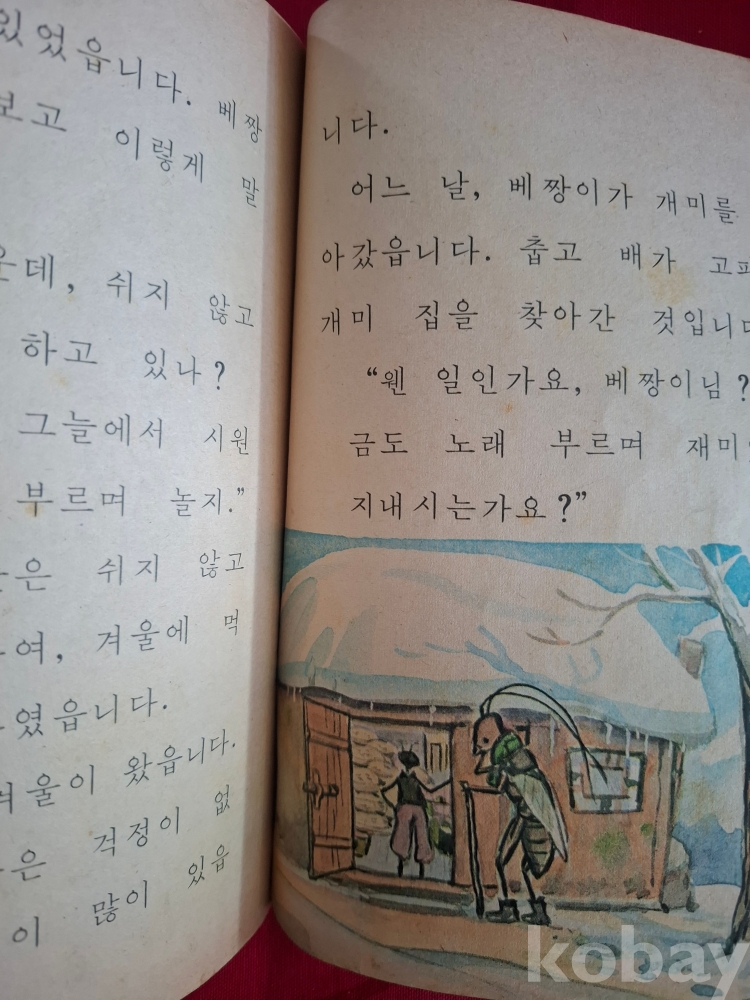 있었읍니다. 베짱
보고 이렇게 말
운데, 쉬지 않고
하고 있나?
그늘에서 시원
부르며 놀지.”
은 쉬지 않고
여, 겨울에 먹
였읍니다.
겨울이 왔읍니다.
은 걱정이 없
이 많이 있읍
니다.
어느 날, 베짱이가 개미를
아갔읍니다. 춥고 배가 고파
개미 집을 찾아간 것입니다
“웬 일인가요, 베짱이님?
금도 노래 부르며 재미
지내시는가요?”
kobay